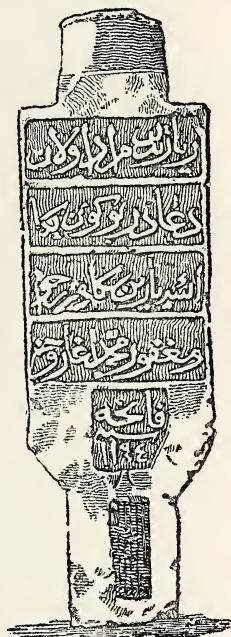 زيارتدن مراد اولان
دعادر بو كون بكا
ايسه يارين
مغفور محمد اغا روحنه
فاتحه
١١٩٤